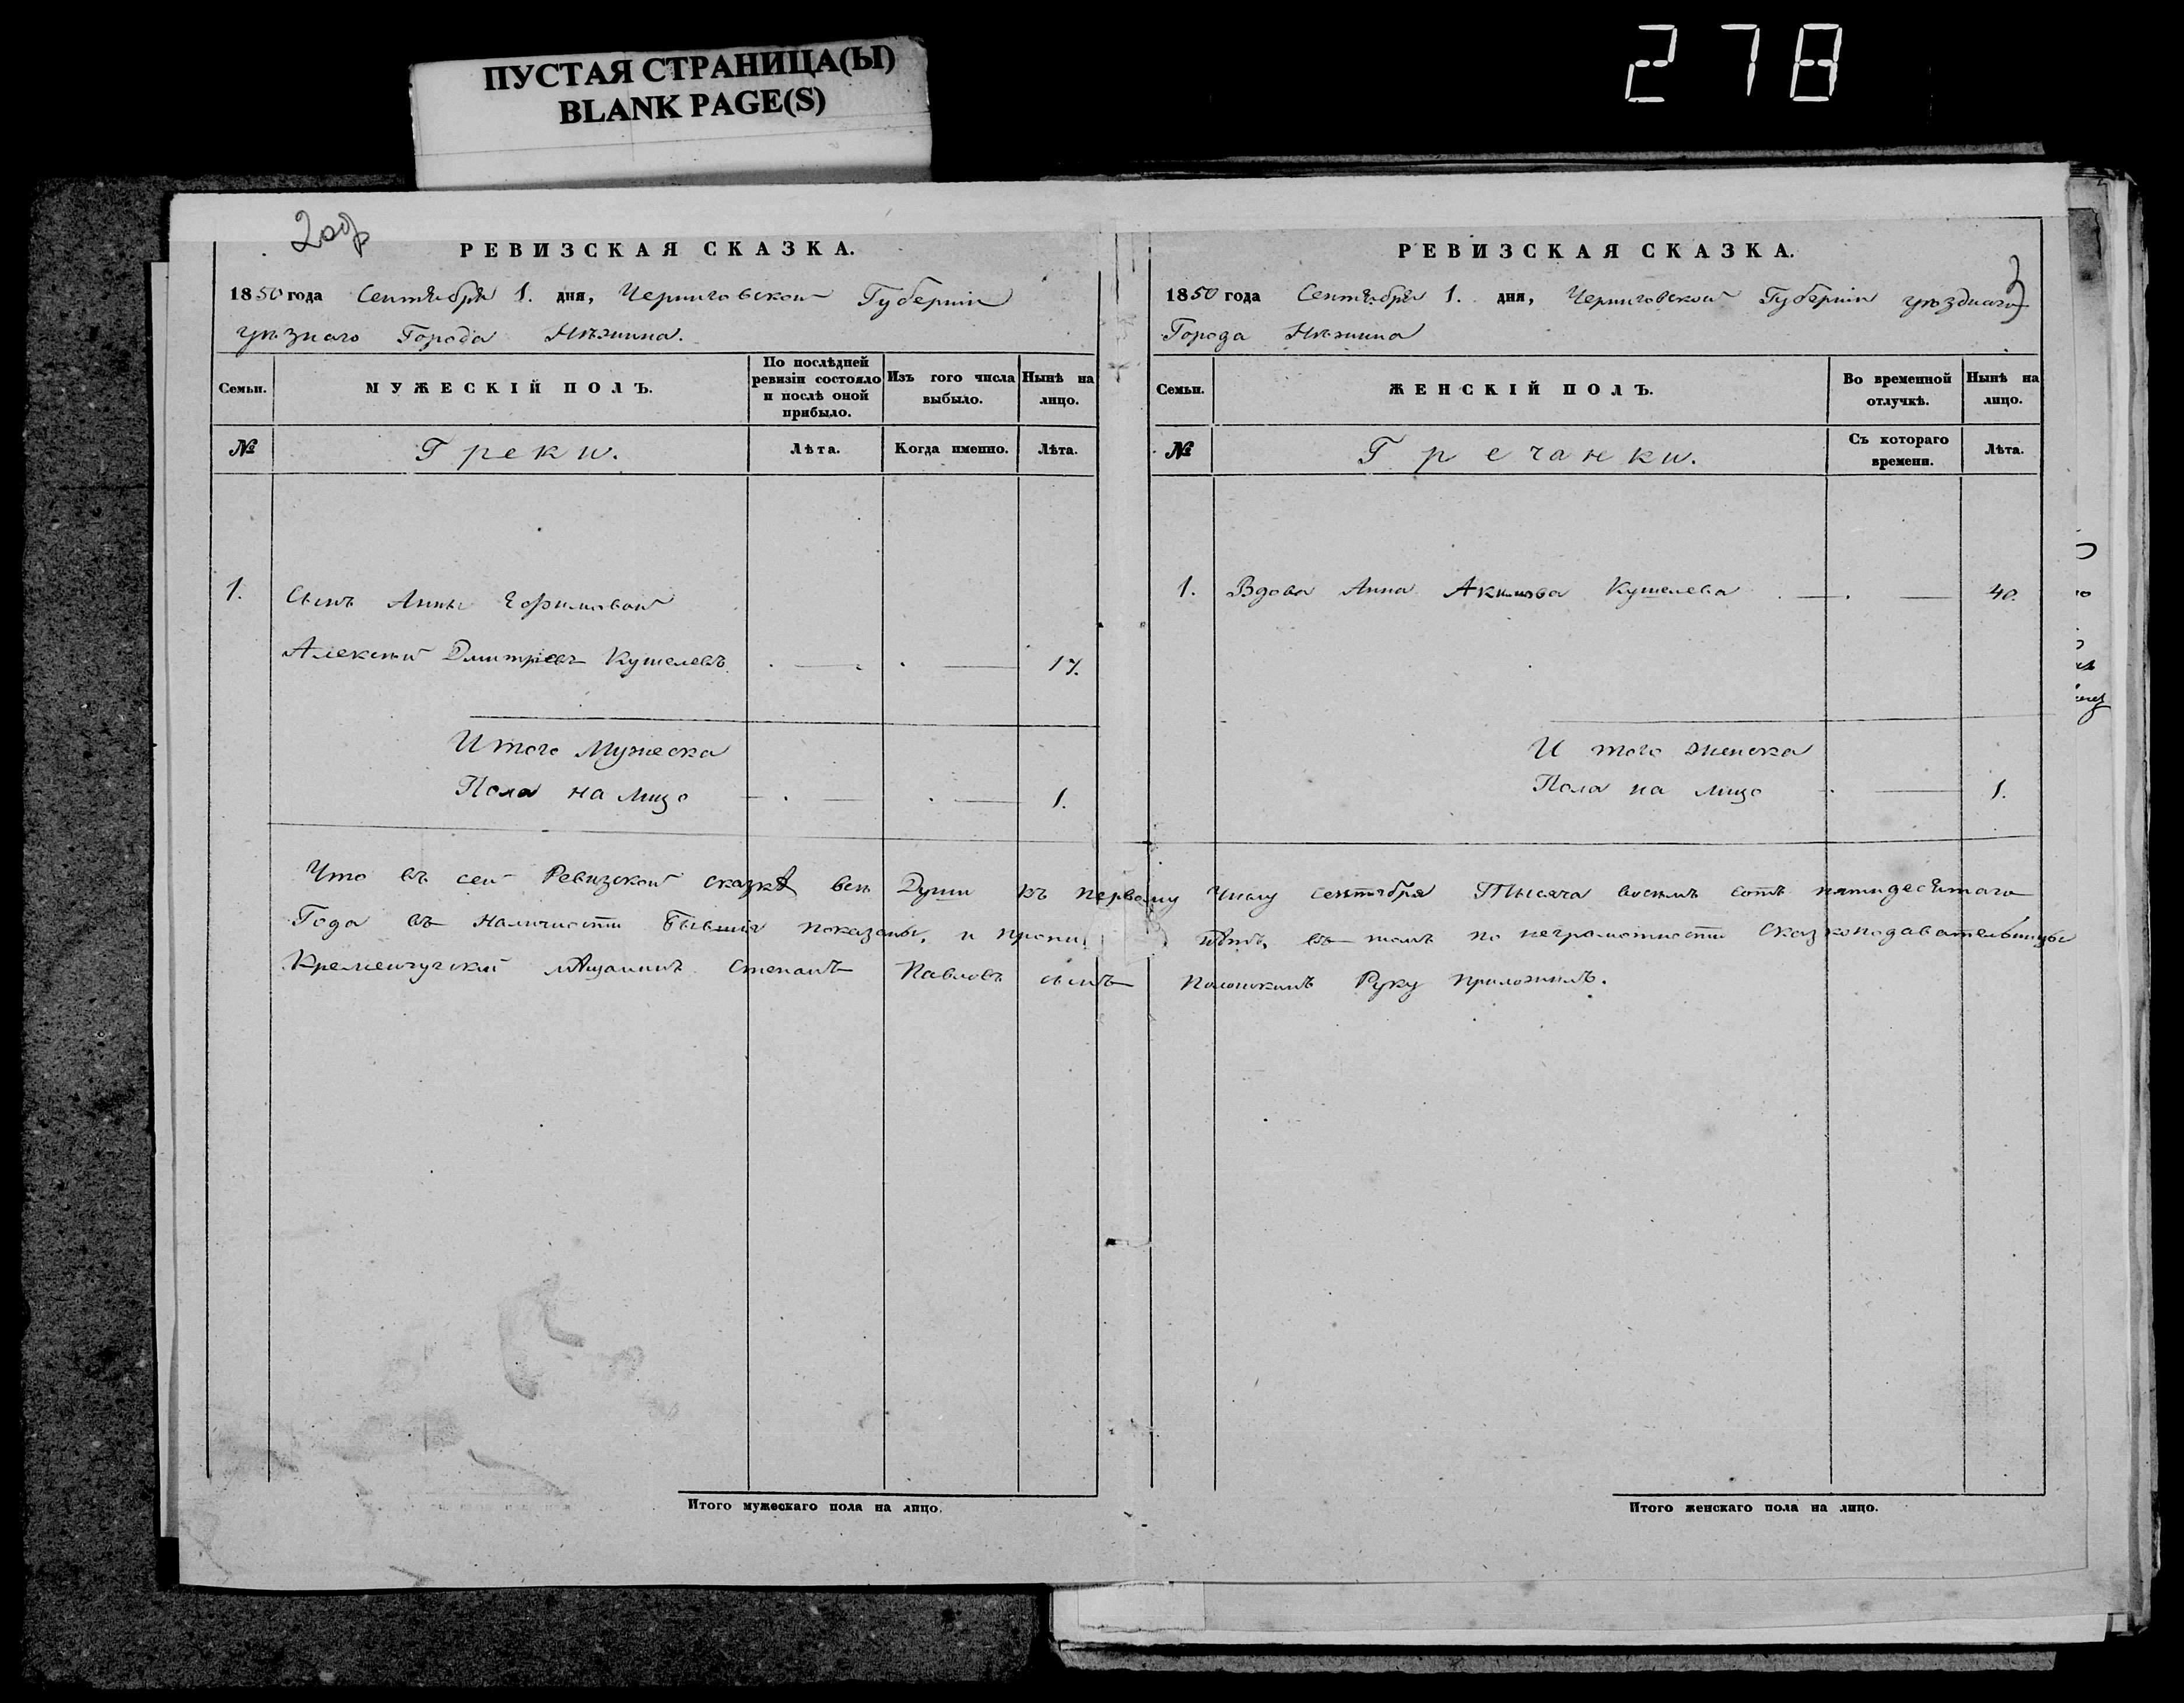 ПУСТАЯ СТРАНИЦА(Ы)
BLANK PAGE(S)
278
2 об
РЕВИЗСКАЯ СКАЗКА.
1850 года Сентября 1. дня, Черниговской Губернiи
уѣзнаго Города Нѣжина.
Семьи.
МУЖЕСКIЙ ПОЛЪ.
По послѣдней ревизiи состояло и послѣ оной прибыло.
Изъ того числа выбыло.
Нынѣ на лицо.
№
Греки.
Лѣта.
Когда именно.
Лѣта.
1.
Сынъ Анны Ефимовой
Алексѣй Дмитрiевъ Кушелевъ
17.
Итого Мужеска
Пола на лицо
1.
РЕВИЗСКАЯ СКАЗКА.
3
1850 года Сентября 1. дня, Черниговской Губернiи уѣзднаго
Города Нѣжина
Семьи.
ЖЕНСКIЙ ПОЛЪ.
Во временной отлучкѣ.
Нынѣ на лицо.
№
Гречанки.
Съ котораго времени.
Лѣта.
1.
Вдова Анна Акимова Кушелева
40.
И того женска
Пола на лицо
1.
Что въ сей Ревизской сказкѣ всѣ Души къ первому Числу сентября Тысяча восемъ сотъ пятидесятаго
Года въ наличности бывшiя показаны, и нѣтъ, въ томъ по неграмотности Сказкоподавательницы
Кременчугскiй мѣщанинъ Степанъ Павловъ сынъ Руку приложилъ.
Итого мужескаго пола на лицо.
Итого женскаго пола на лицо.